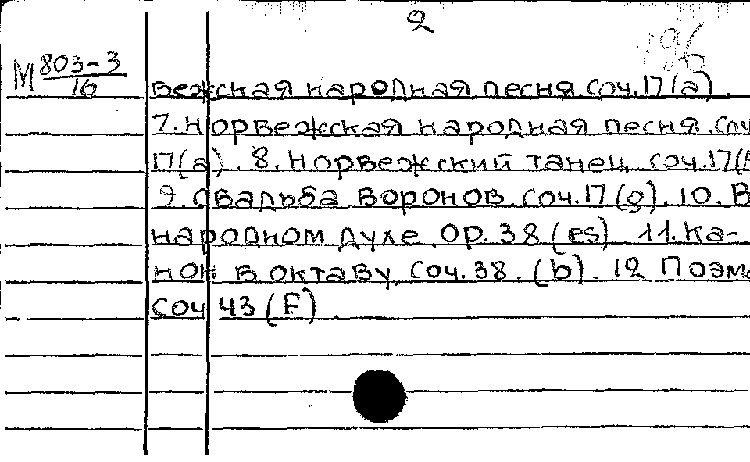 2
М 803-3
16
вежская народная песня. Соч. 17(a).
7. Норвежская народная песня. Соч
17(a). 8. Норвежский танец. Соч. 17(
9. Свадьба воронов. Соч. 17(g). 10. В
народном духе. Ор. 38 (es). 11. Ка-
нон в октаву. Соч. 38. (b). 12 Поэм
Соч 43 (F).